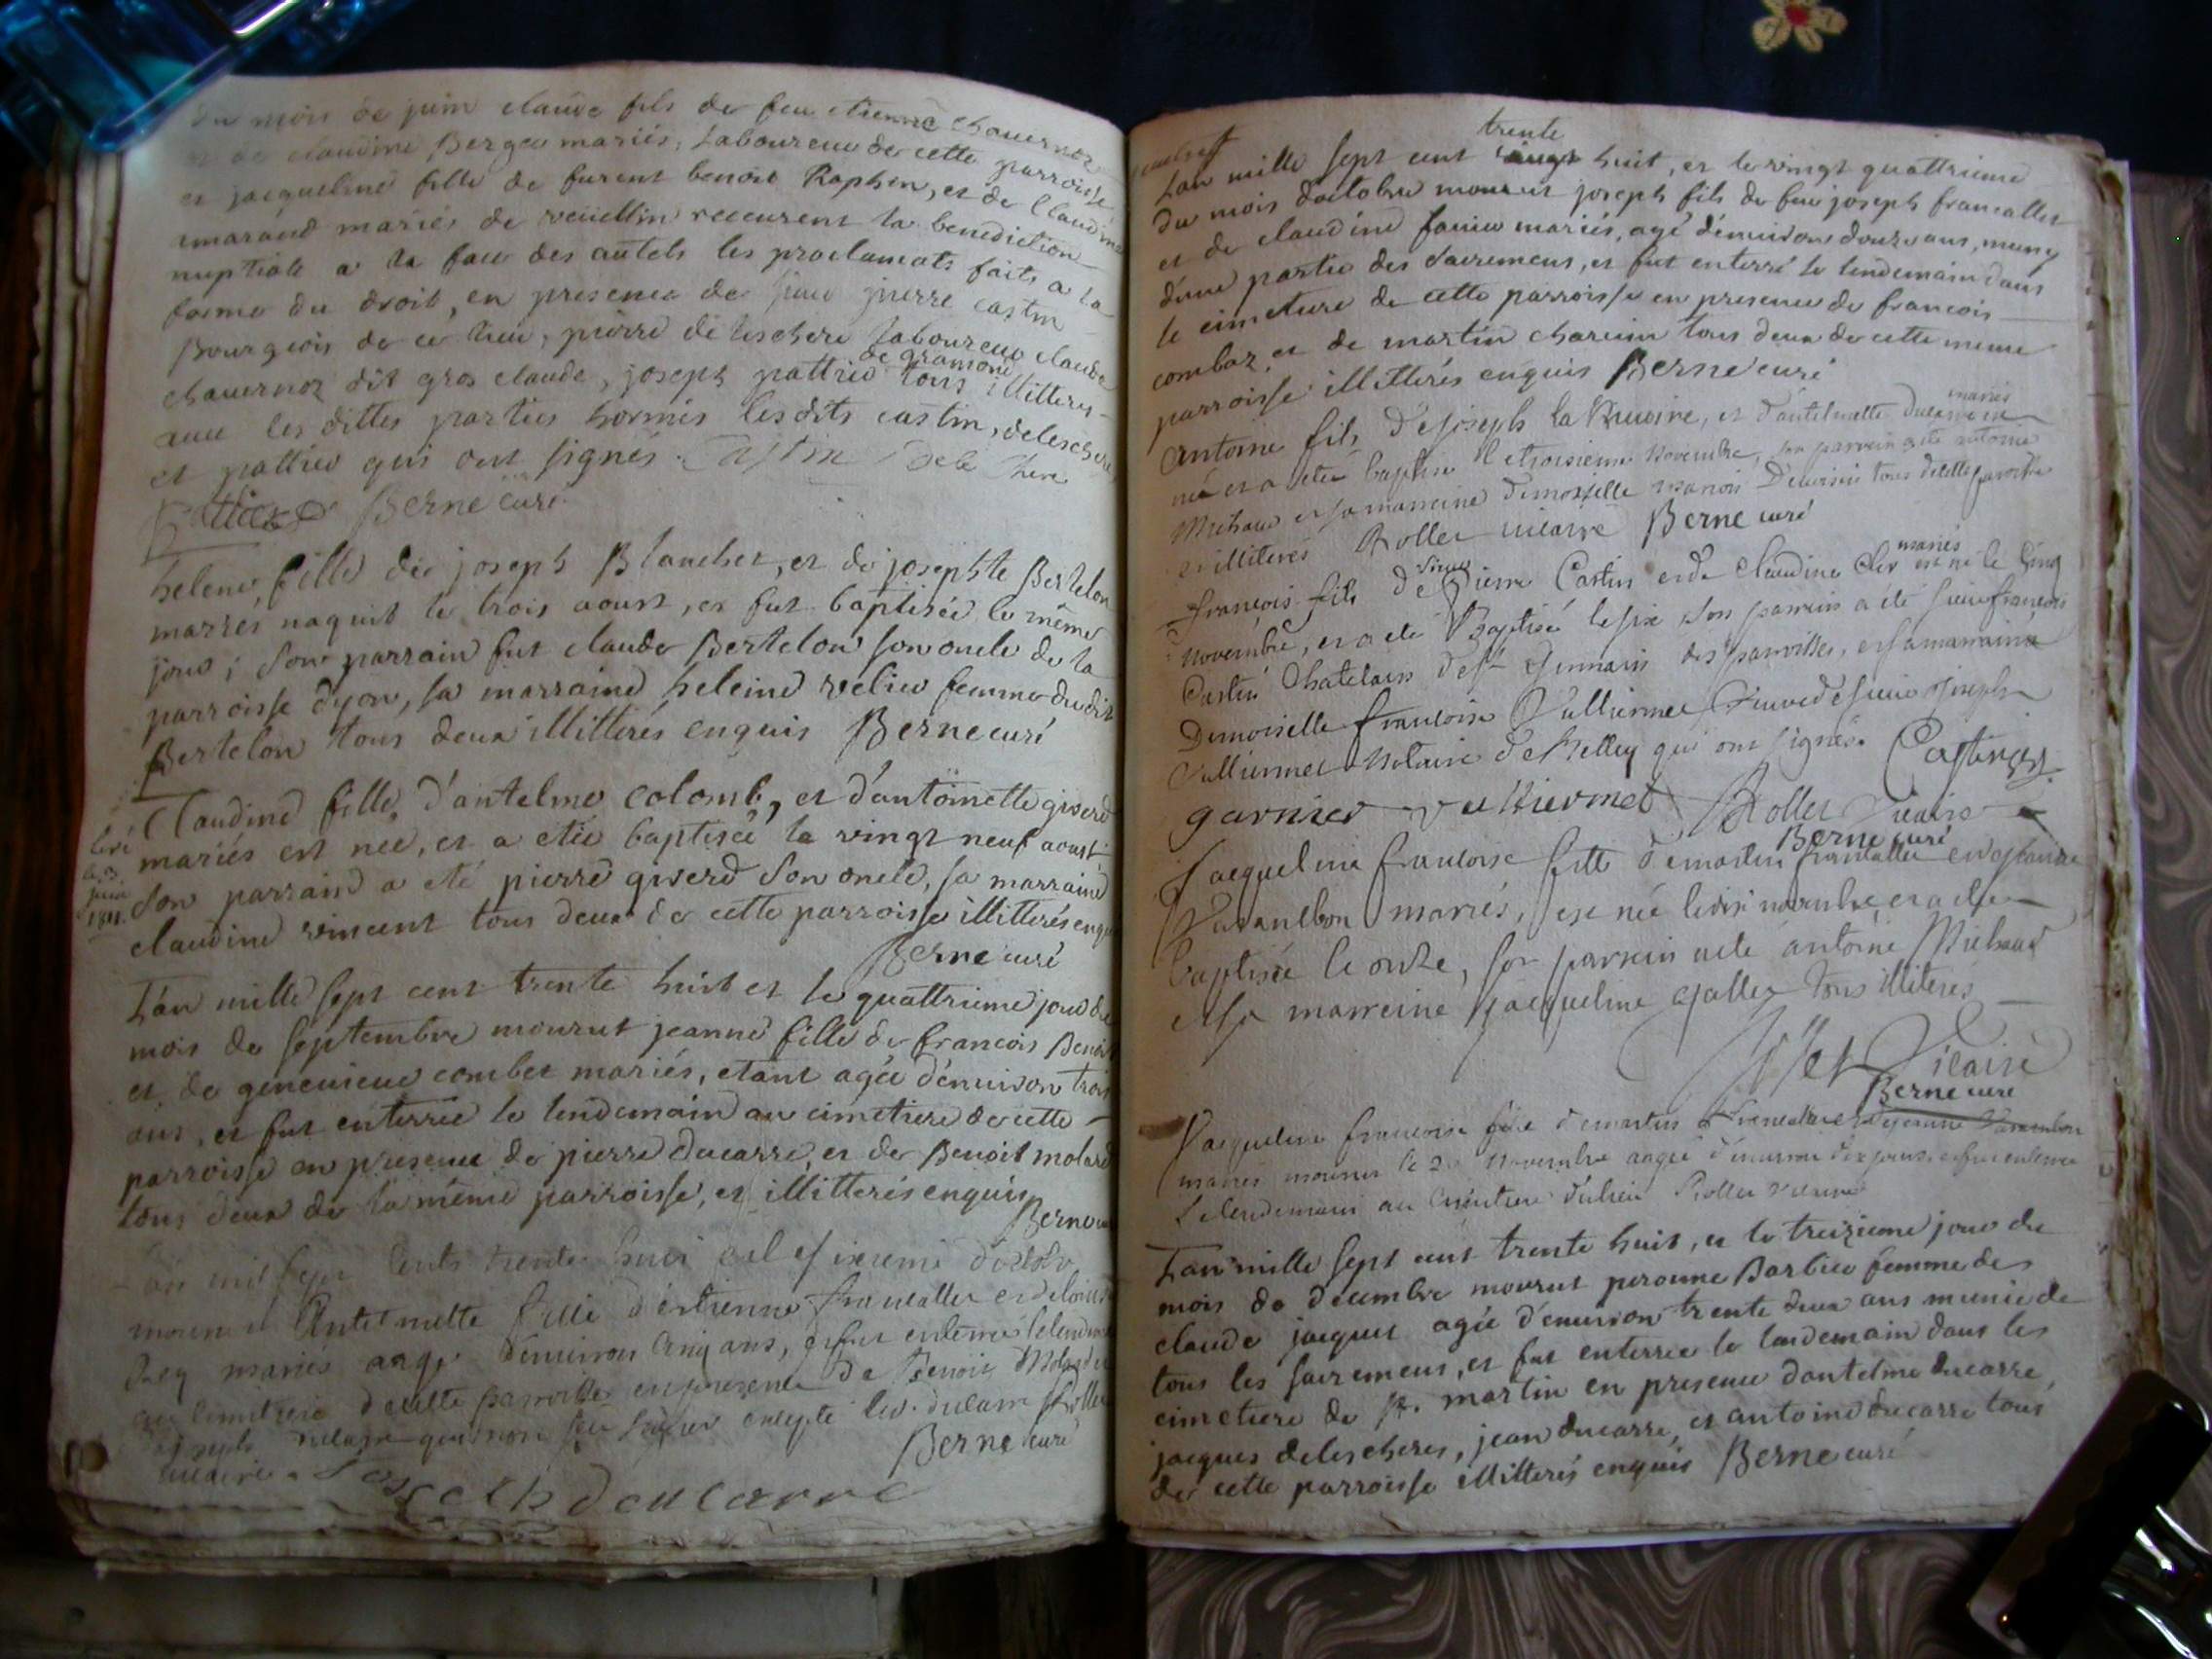 du mois de juin claude fils de feu etienne chauernoz
et de claudine Berger mariés, Laboureur de cette parroisse
et jacqueline fille de furent benoit Raphin, et de Claudine
mariés de recurent la benediction
nuptiale a la face des autels les proclamats faits a la
forme du droit, en presence de sieur pierre castin
Bourgeois de ce lieu, pierre deleschere laboureur claude
chauernoz dit gros claude, joseph pattieu de gramont tous illitterés
auec les dittes parties hormis lesdits castin, deleschere
et pattieu qui ont signés. Castin Dele chere
Berne curé
helene, fille de joseph Blanchet, et de josephte Bertelon
mariés naquit le trois aoust, et fut baptisée le même
jour ; son parrain fut claude Bertelon son oncle de la
parroisse dyon, sa marraine heleine velieu femme dudit
Bertelon tous deux illitterés enquis Berne curé
Claudine fille, d'antelme colomb, et d'antoinette giverd
mariés est neé, et a etée baptisée le vingt neuf aoust
son parrain a eté pierre giverd son oncle, sa marraine
claudine vincent tous deux de cette parroisse illitterés enquis
Berne curé
juin
1811.
L'an mille sept cent trente huit et le quattrieme jour du
mois de septembre mourut jeanne fille de francois Benoit
et de geneuieue combet mariés, etant agée d'enuiron trois
ans, et fut enterrée le lendemain au cimetiere de cette
parroisse en presence de pierre ducarre, et de Benoit molard
tous deux de la même parroisse, et illitterés enquis
Berne curé
L'an mil sept cents trente huit et le sixieme d'octobre
mourut Antelmette fille d'estienne francallet et de
mariés aagé d'enuiron cinq ans, et fut enterré le lendemain
au cimitiere de cette parroisse en presence de Benoit Molard et
joseph ducarre qui nont seu signer excepté led. ducarre Rollet
vicaire. Berne curé
Joseph deucarre
L'an mille sept cent trente huit, et le vingt quattrieme
du mois d'octobre mourut joseph fils de feu joseph francallet
et de claudine mariés, agé d'enuiron douze ans, muny
d'une partie des sacremens, et fut enterré le lendemain dans
le cimetiere de cette parroisse en presence de francois
combaz, et de martin charuin tous deux de cette meme
parroisse illitterés enquis Berne curé
antoine fils de joseph la Ruoire, et d'antelmette ducarre mariés
né et a etée baptisé le troisieme Novembre, son parrein a eté antoine
Michaud et sa marreine demoiselle manon tous de cette parroisse
et illiterés Rollet vicaire Berne curé
françois fils de sieur Pierre Castin et de Claudine Cler mariés est né le cinq
Novembre, et a eté Baptisé le six son parrein a eté sieur françois
Castin Chatelain de St Germain des parroisses, et sa marraine
Demoiselle francoise Vulliermet veuve de sieur joseph
Vulliermet Notaire de Belley qui ont signés. Castin
garnier vulliermet Rollet vicaire
Berne curé
Jacqueline francoise fille de martin francallet et de jeanne
Varambon mariés, est née le dix novembre, et a eté
baptisée le onze, son parrein a eté antoine Michaud
et sa marreine jacqueline gallex tous illiterés
Rollet Vicaire
Berne curé
Jacqueline francoise fille de martin francallet et de jeanne Varambon
mariés mourut le 20 Novembre aagée d'enuiron dix jours et fut enterrée
Le lendemain au cimitiere dudit lieu Rollet vicaire
L'an mille sept cent trente huit, et le treizieme jour du
mois de decembre mourut peronne Barbier femme de
claude jacquet agée d'enuiron trente deux ans munie de
tous les sacremens, et fut enterrée le lendemain dans le
cimetiere de st. martin en presence dantelme ducarre,
jacques deleschere, jean ducarre, et antoine ducarre tous
de cette parroisse illitterés enquis Berne curé